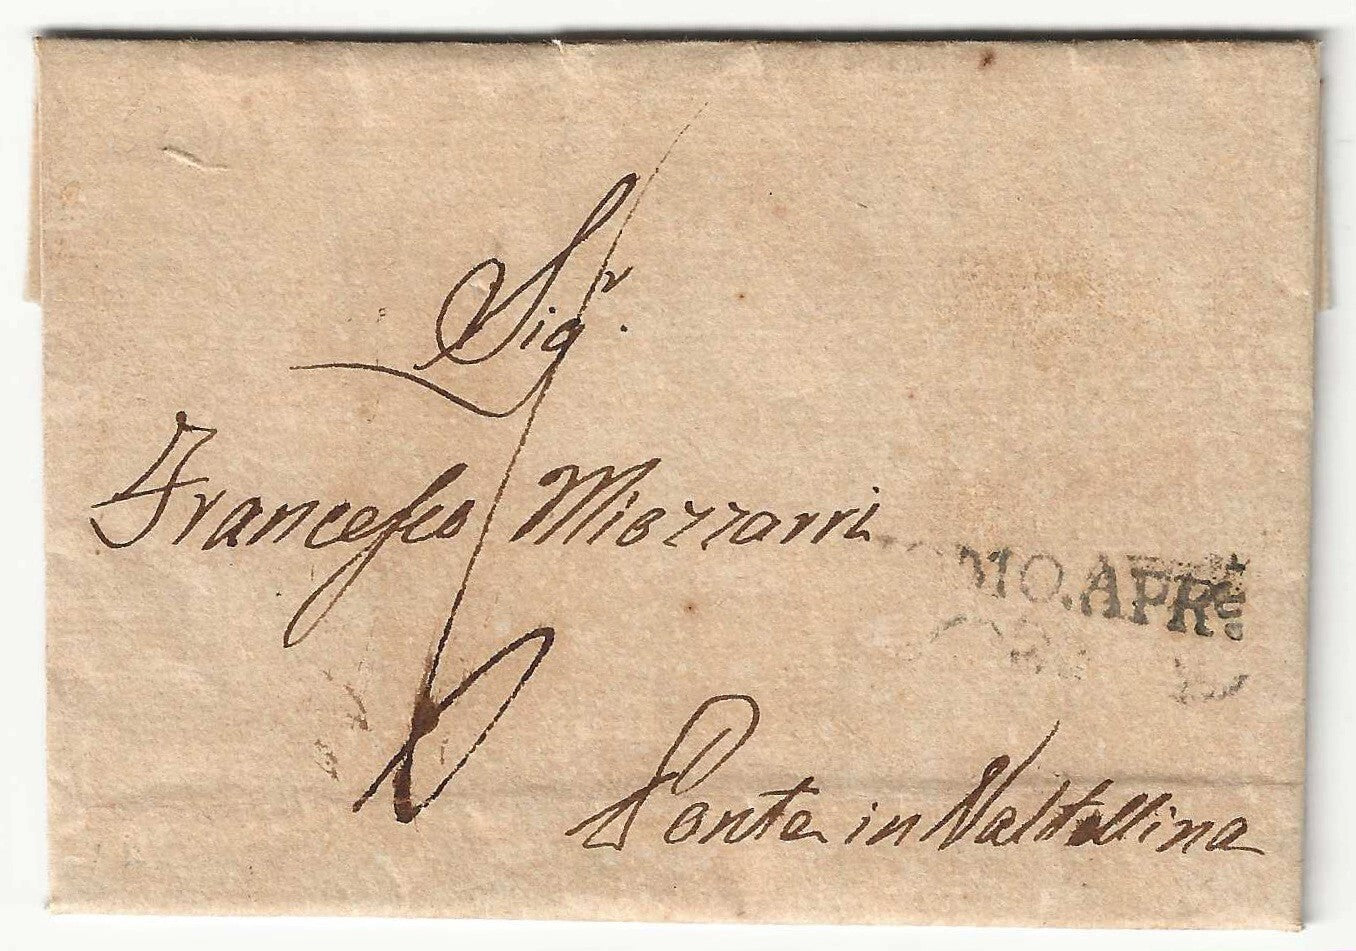 Sigr.
Francesco Miozzarri
OMO.APRE.
Ponte in Valtellina